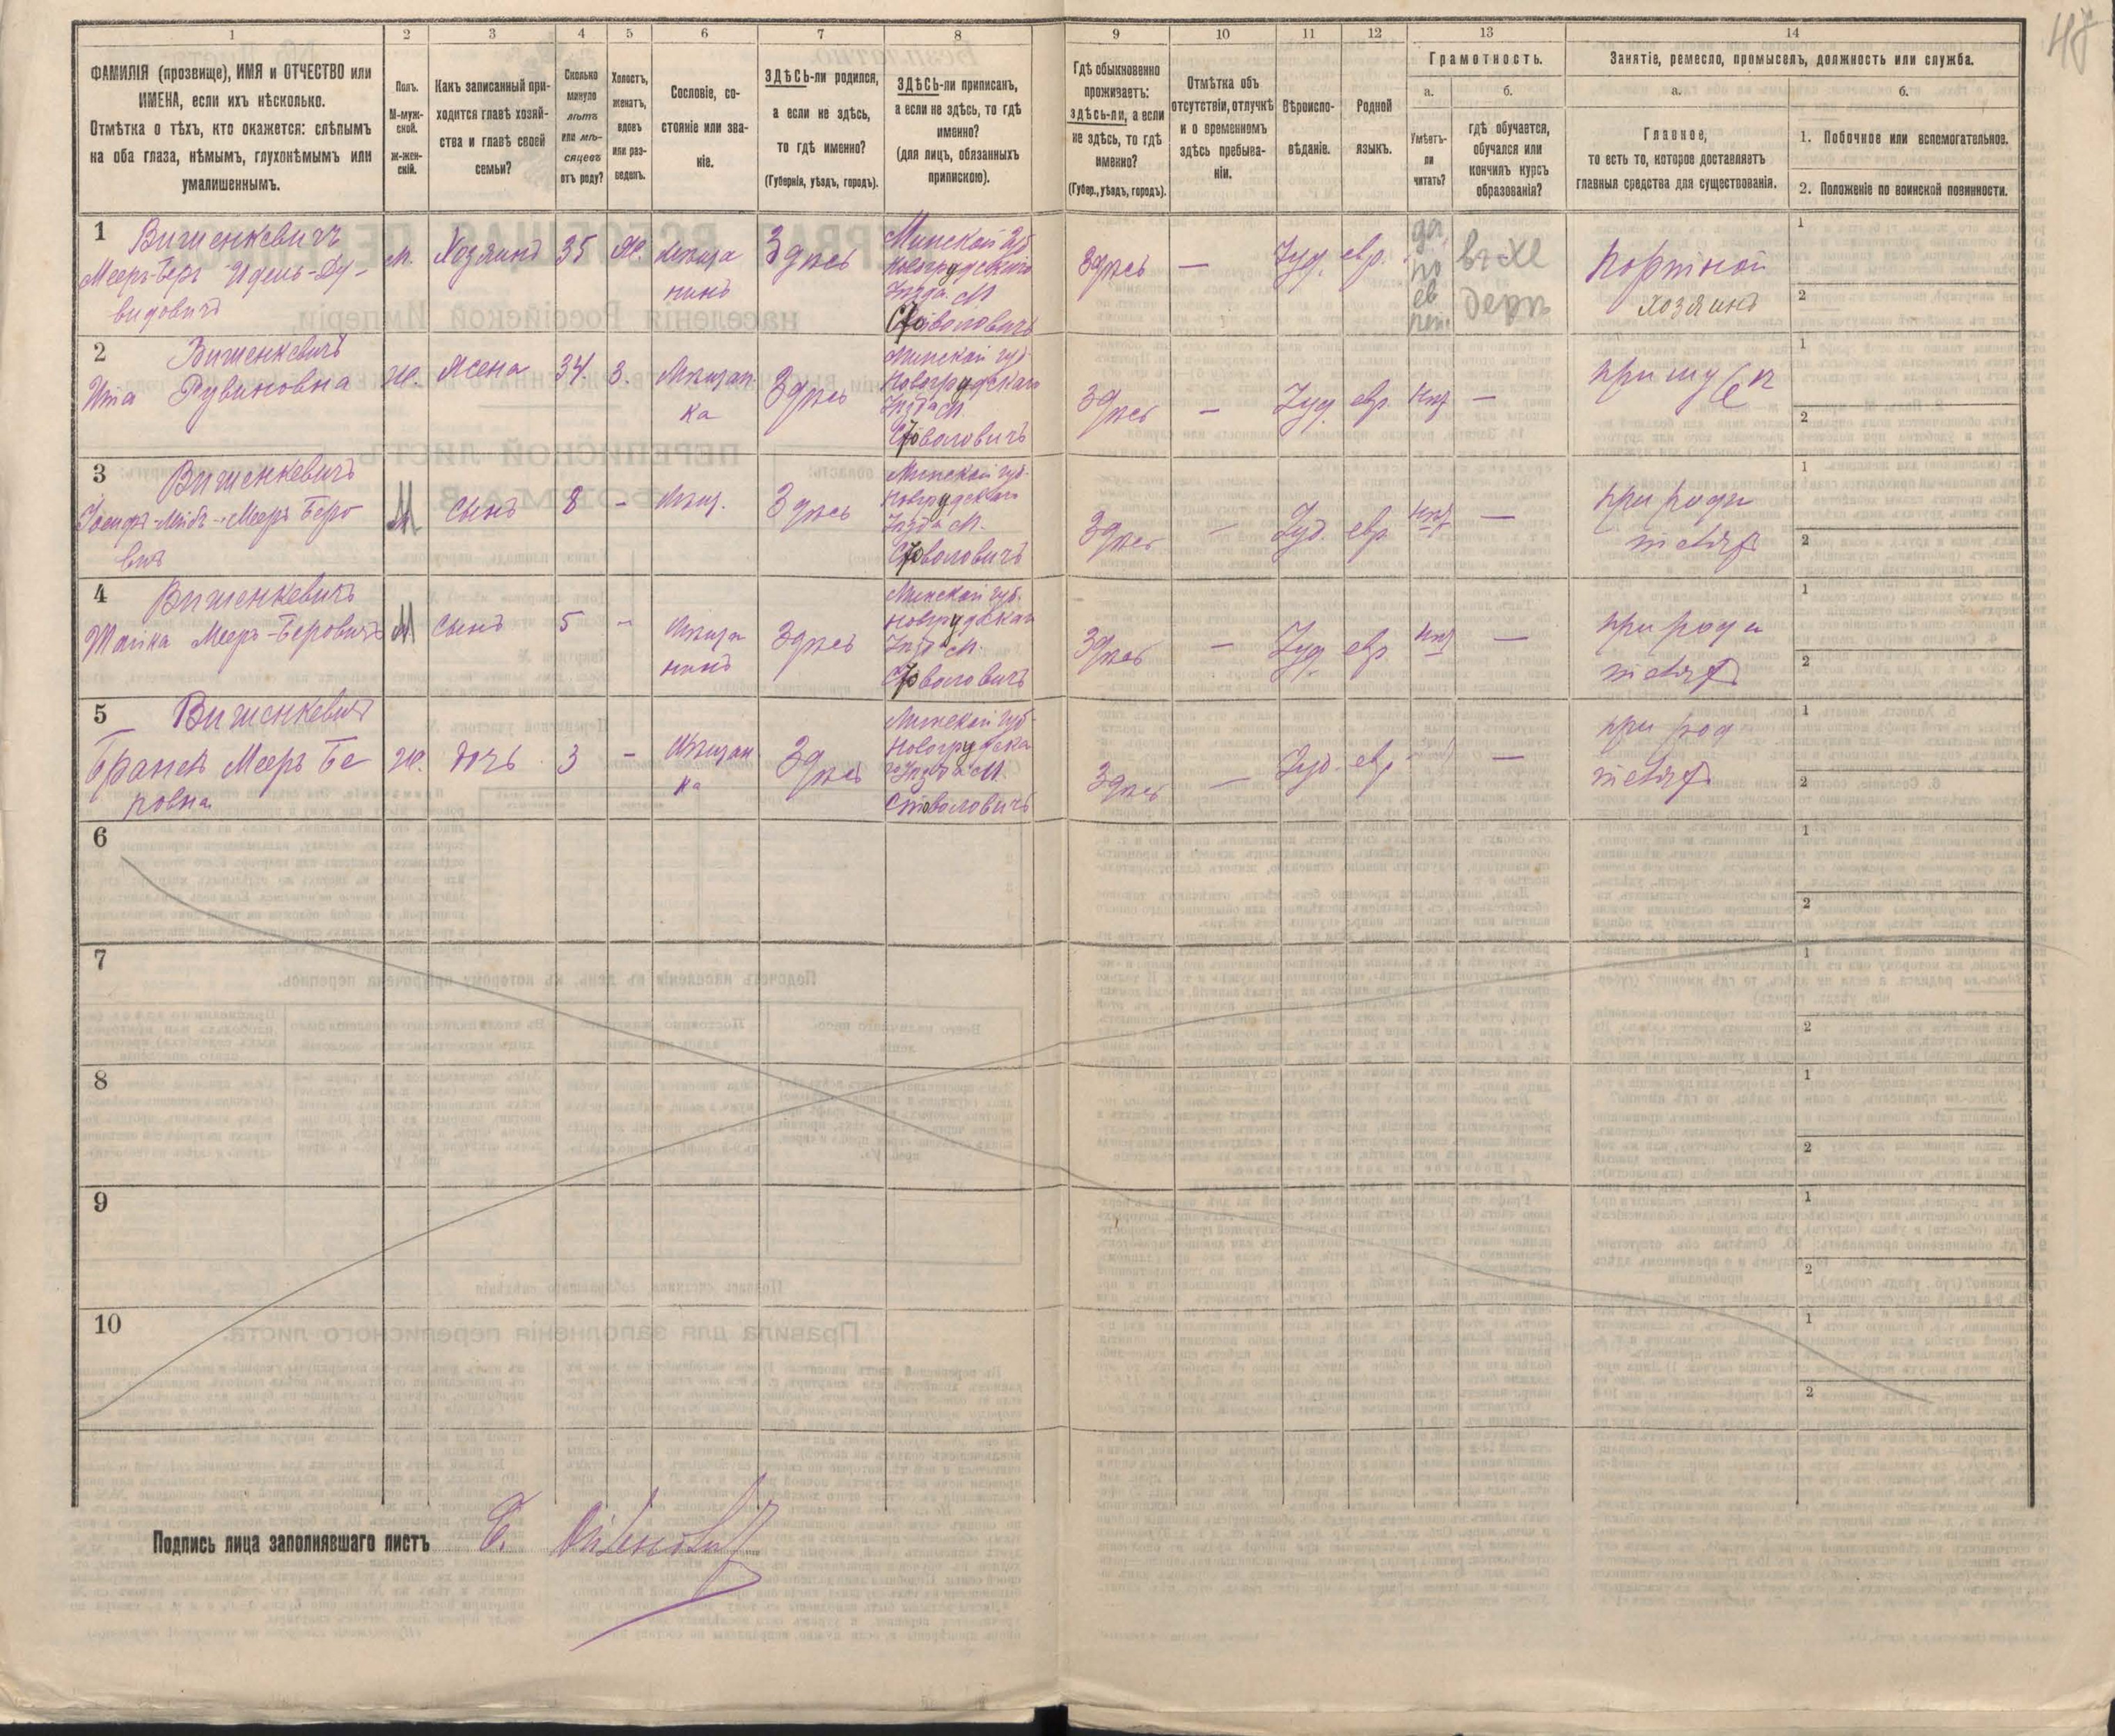 48
1
2
3
4
5
6
7
8
9
10
11
12
13
14
ФАМИЛІЯ (прозвище), ИМЯ и ОТЧЕСТВО или
ИМЕНА, если ихъ нѣсколько.
Отмѣтка о тѣхъ, кто окажется: слѣпымъ
на оба глаза, нѣмымъ, глухонѣмымъ или
умалишеннымъ.
Полъ.
М-муж-
ской.
ж-жен-
скій.
Какъ записанный при-
ходится главѣ хозяй-
ства и главѣ своей
семьи?
Сколько
минуло
лѣтъ
или мѣ-
сяцевъ
отъ роду?
Холостъ,
женатъ,
вдовъ
или раз-
веденъ.
Сословіе, со-
стояніе или зва-
ніе.
ЗДѢСЬ-ли родился,
а если не здѣсь,
то гдѣ именно?
(Губернія, уѣздъ, городъ).
ЗДѢСЬ-ли приписанъ,
а если не здѣсь, то гдѣ
именно?
(для лицъ, обязанныхъ
припискою).
Гдѣ обыкновенно
проживаетъ:
здѣсь-ли, а если
не здѣсь, то гдѣ
именно?
(Губер., уѣздъ, городъ).
Отмѣтка объ
отсутствіи, отлучкѣ
и о временномъ
здѣсь пребыва-
ніи.
Вѣроиспо-
вѣданіе.
Родной
языкъ.
Грамотность.
а.
Умѣетъ-
ли
читать?
б.
гдѣ обучается,
обучался или
кончилъ курсъ
образованія?
Занятіе, ремесло, промыселъ, должность или служба.
а.
Главное,
то есть то, которое доставляетъ
главныя средства для существованія.
б.
1. Побочное или вспомогательное.
2. Положеніе по воинской повинности.
1
Вишенкевичъ
Мееръ-Беръ Идель-Ду-
видовичъ
м.
Хозяинъ
35
Ж.
мѣща
нинъ
Здѣсь
Минской губ
Новогрудскаго
Уѣзда М
Столовичъ
Здѣсь
—
Іуд.
евр.
да,
по
ев
рей.
въ Хе
дерѣ
портной
хозяинъ
1
2
2
Вишенкевичъ
Ита Рувиновна
Ж.
Жена
34.
З.
Мѣщан
ка
Здѣсь
Минской губ
Новогрудскаго
Уѣзда М.
Здѣсь
—
Іуд.
евр.
нѣт
—
при мужѣ
1
2
3
Вишенкевичъ
Іосифъ-Лейбъ-Мееръ Беро
вичъ
М
Сынъ
8
-
Мѣщ.
Здѣсь
Минской губ.
Новогрудскаго
Уѣзда М.
Здѣсь
—
Іуд.
евр
нѣт
—
при роди
теляхъ
1
2
4
Вишенкевичъ
Мееръ-Беровичъ
М
Сынъ
5
-
Мѣща
нинъ
Здѣсь
Минской губ.
Новогрудскаго
Уѣзда М.
Здѣсь
—
Іуд
евр
нѣт
—
при роди
теляхъ
1
2
5
Вишенкевичъ
Мееръ Бе
ровна
Ж.
дочь
3
-
Мѣщан
ка
Здѣсь
Минской губ
Новогрудска
Уѣзда М.
Здѣсь
—
Іуд.
евр
—
при род
теляхъ
1
2
6
1
2
7
1
2
8
1
2
9
1
2
10
1
2
Подпись лица заполнявшаго листъ